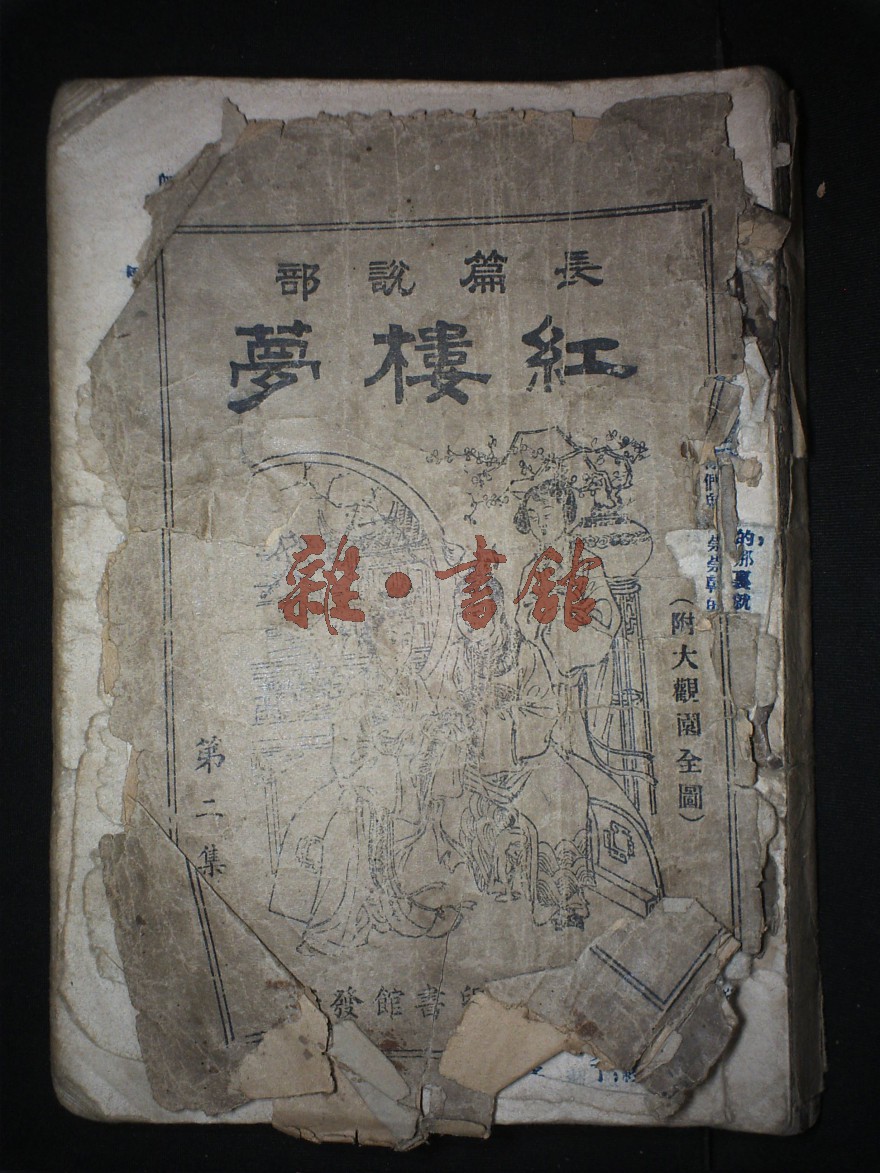 長篇說部
紅樓夢
（附大觀園全圖）
雜·書館
第二集
書館發
的，
那裏就